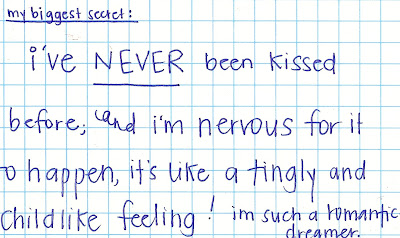 my biggest secret:
i've NEVER been kissed
before, and i'm nervous for it
to happen, it's like a tingly and
childlike feeling! im such a romantic
dreamer.